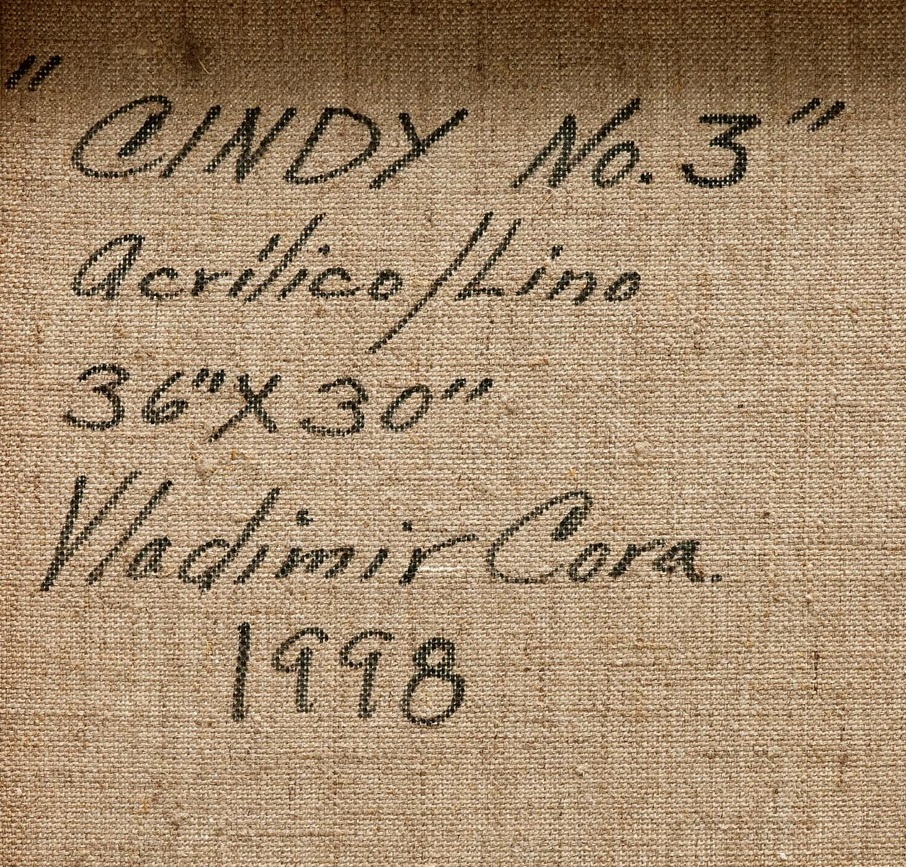 "CINDY No. 3"
Acrílico/Lino
36"X30"
Vladimir Cora.
1998